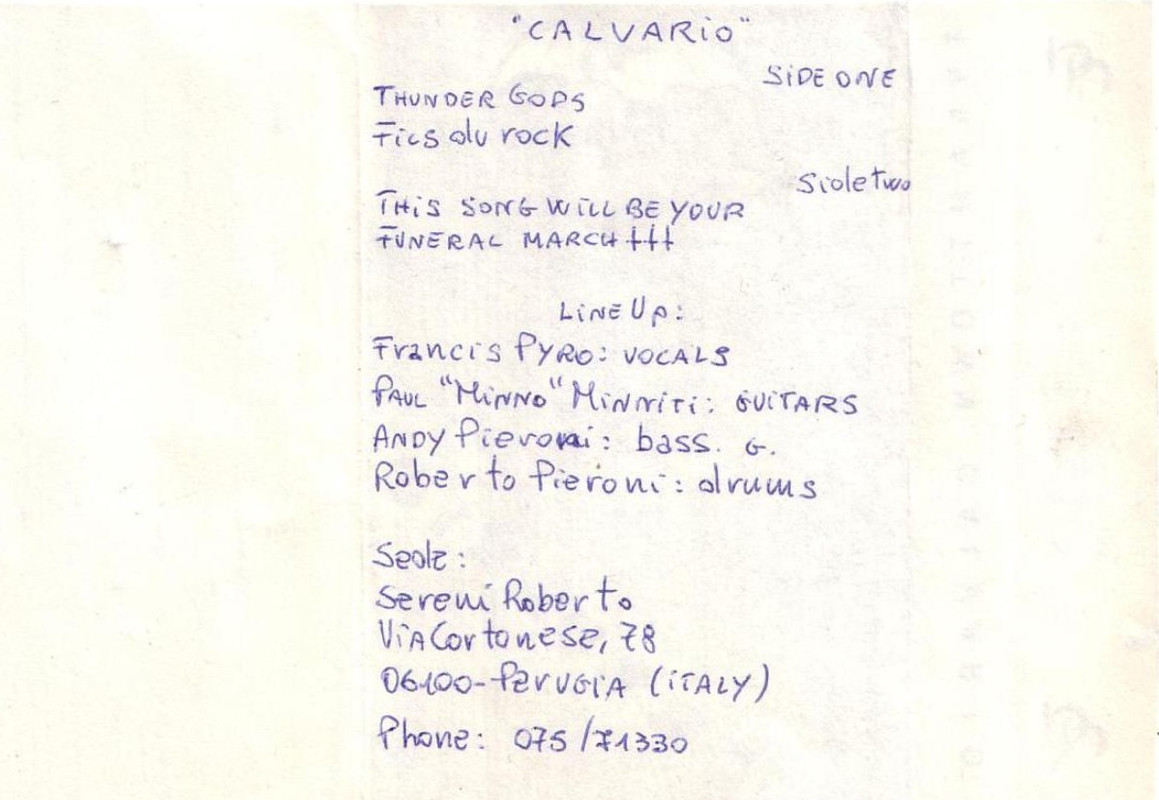 "CALVARiO"
SiDE ONE
THUNDER GODS
Fics du rock
Side two
THiS SONG WiLL BE YOUR
FUNERAL MARCH †††
LiNE Up:
Francis PYRO: VOCALS
PAUL "MiNNO" MiNNiTi: GUiTARS
ANDY Pieroni: bass. G.
Roberto Pieroni: drums
Sede:
Sereni Roberto
ViA Cortonese, 78
06100-PERUGiA (iTALY)
Phone: 075/71330